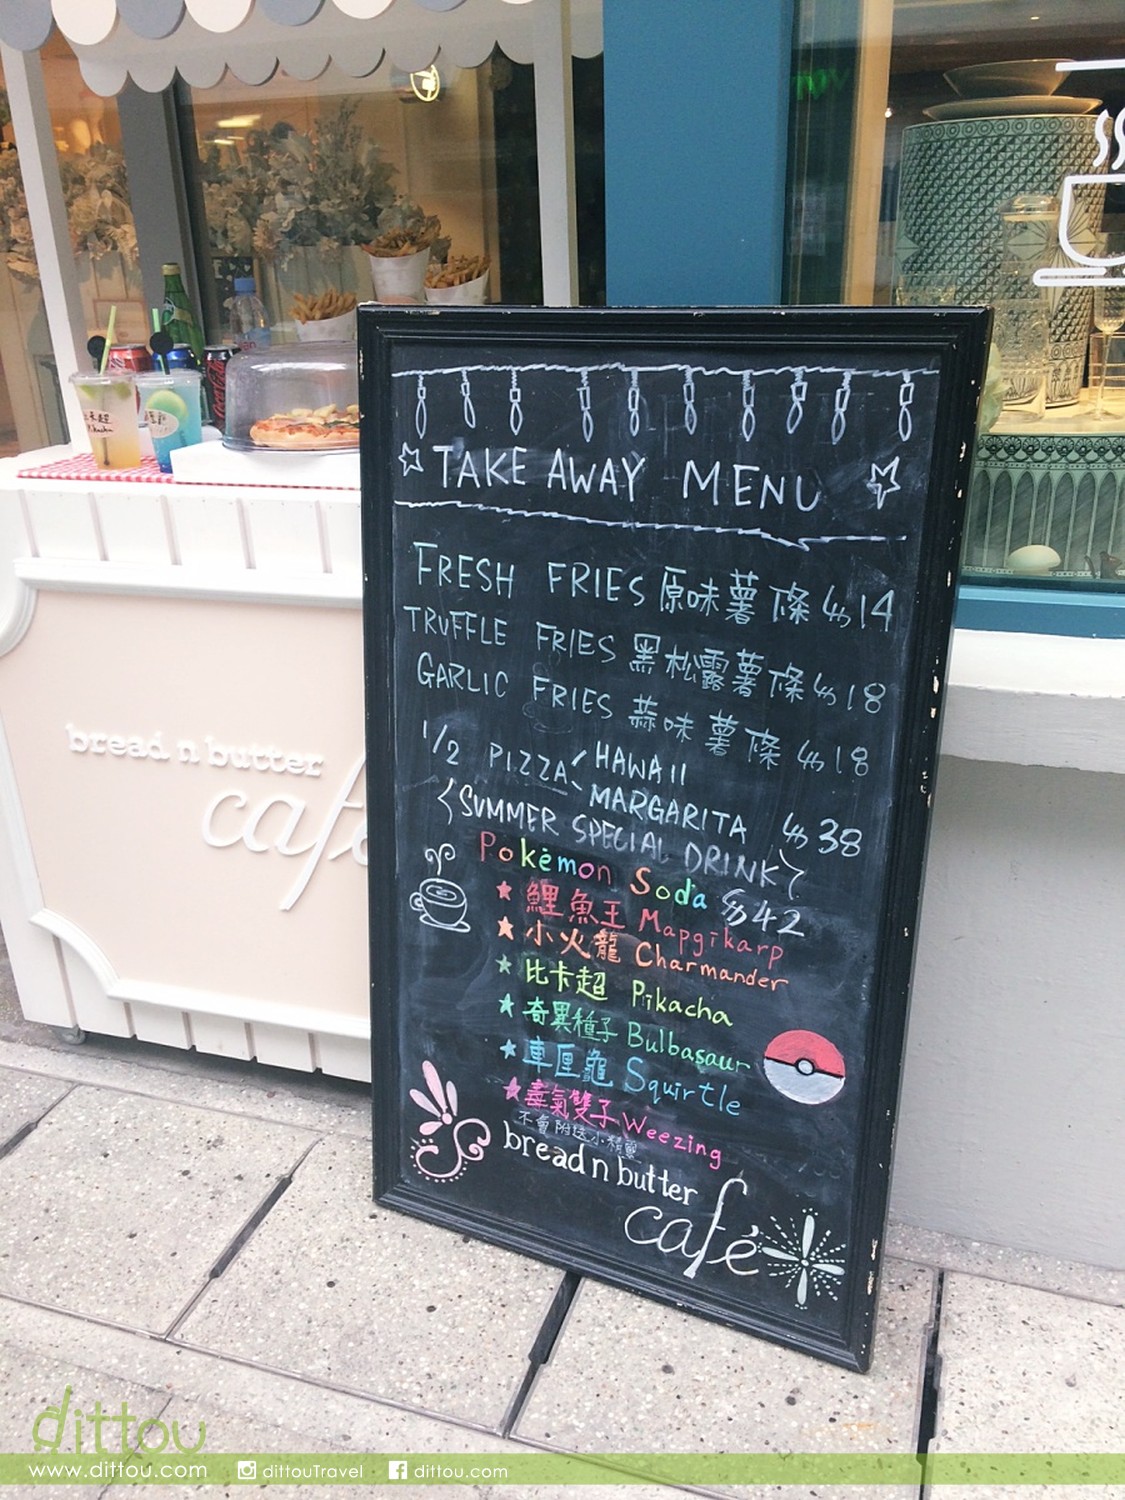 TAKE AWAY MENU
FRESH FRIES 原味薯條 $14
TRUFFLE FRIES 黑松露薯條 $18
GARLIC FRIES 蒜味薯條 $18
1/2 PIZZA HAWAII
MARGARITA $38
SUMMER SPECIAL DRINK
Pokémon Soda $42
鯉魚王 Mapgikarp
小火龍 Charmander
比卡超 Pikacha
奇異種子 Bulbasaur
車厘龜 Squirtle
毒氣雙子 Weezing
不會附送小精靈
bread n butter
café
bread n butter
café
比卡超
Pikacha
dittou
www.dittou.com dittouTravel dittou.com